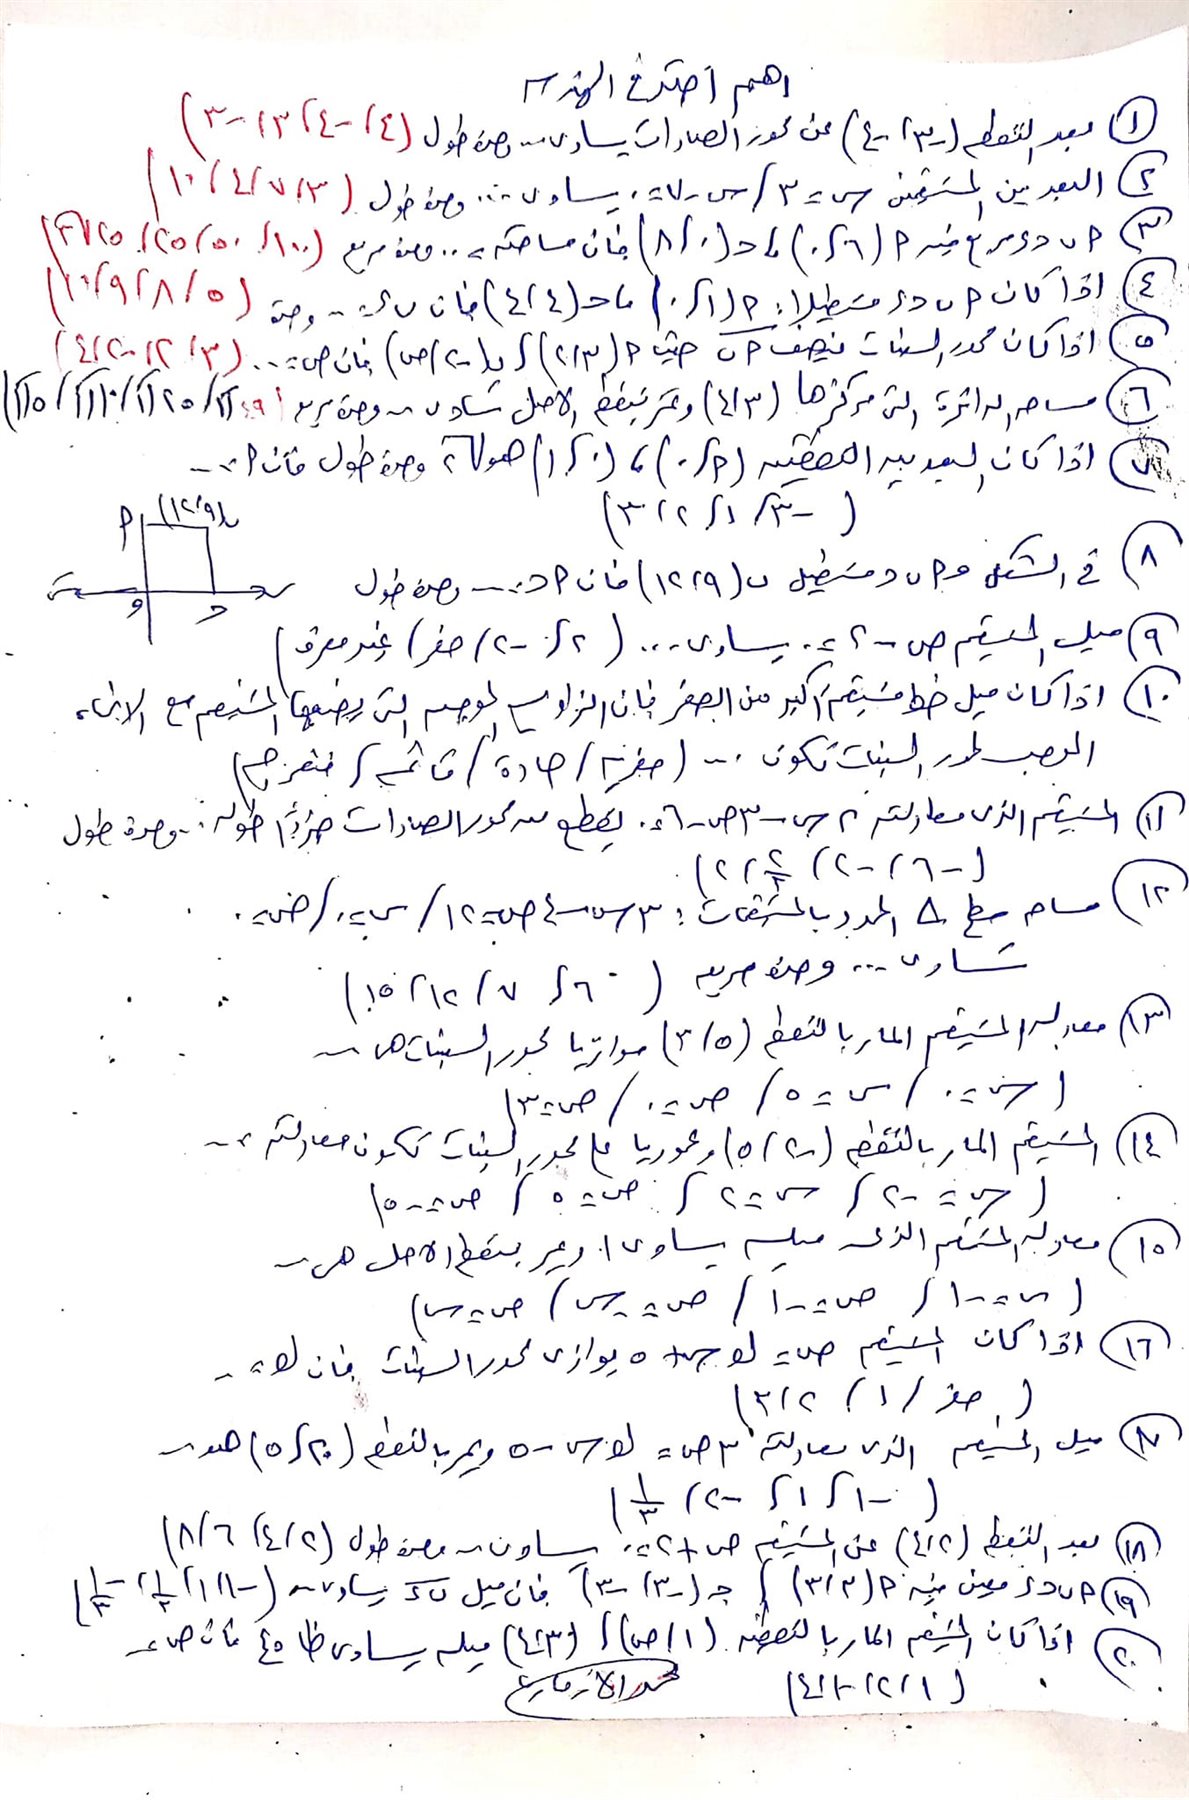 اهم اختر فى الهندسة
① بعد النقطة (-٣، -٤) عن محور الصادات يساوى -- وحدة طول (٤، -٤، ٣، -٣)
② البعد بين المستقيمين س = ٣، س - ٧ = ٠ يساوى ... وحدة طول (٣، ٧، ٤، ١٠)
③ ٩ ب ج د مربع فيه ٩ (٦، ٠)، ج (٠، ٨) فان مساحته = .. وحدة مربع (١٠٠، ٥٠، ٢٥،
④ اذا كان ٩ ب ج د مستطيلا: ٩ (١، ٠)، ج (٤، ٤) فان ب د = -- وحدة (٥، ٨، ٩، ١٠)
⑤ اذا كان محور السينات ينصف ٩ ب حيث ٩ (٣، ٢)، ب (-٢، ص) فان ص = ... (٣، ٢، -٢، ٤)
⑥ مساحة الدائرة التى مركزها (٣، ٤) وتمر بنقطة الاصل تساوى -- وحدة مربع
⑦ اذا كان البعد بين النقطتين (٩، ٠)، (٠، ١) هو وحدة طول فان ٩ = --
(-٣، ١، ٢، ٣)
٩ ب (٩، ١٢)
و ج
⑧ فى الشكل و ٩ ب ج مستطيل ب (٩، ١٢) فان ٩ ج = --- وحدة طول
⑨ ميل المستقيم ص - ٢ = ٠ يساوى ... (٢، -٢، صفر، غير معرف)
⑩ اذا كان ميل خط مستقيم اكبر من الصفر فان الزاوية الموجبة التى يصنعها المستقيم مع الاتجاه
الموجب لمحور السينات تكون -- (صفرية / حادة / قائمة / منفرجة)
⑪ المستقيم الذى معادلته ٢ س - ٣ ص - ٦ = ٠ يقطع من محور الصادات جزءًا طوله .. وحدة طول
(-٦، -٢، ٢/٣، ٢)
⑫ مساحة سطح △ المحدد بالمستقيمات: ٣ س - ٤ ص = ١٢، س = ٠، ص = ٠
تساوى ... وحدة مربعه (٦، ٧، ١٢، ١٥)
⑬ معادلة المستقيم المار بالنقطة (٥، ٣) موازيا لمحور السينات هى --
(س = ٠ / س = ٥ / ص = ٠ / ص = ٣)
⑭ المستقيم المار بالنقطة (-٢، ٥) وعموديا على محور السينات تكون معادلته = --
(س = -٢ / س = ٢ / ص = ٥ / ص = -٥)
⑮ معادلة المستقيم الذى ميله يساوى ١ ويمر بنقطة الاصل هى --
(س = -١ / ص = -١ / ص = -س / ص = س)
⑯ اذا كان المستقيم ص = ك س + ٥ يوازى محور السينات فان ك = --
(صفر / ١ / ٢ / ٣)
⑰ ميل المستقيم الذى معادلته ٣ ص = ك س - ٥ ويمر بالنقطة هو --
(-١، ١، -٢، ١/٣)
⑱ بعد النقطة (٢، ٤) عن المستقيم ص + ٢ = ٠ يساوى -- وحدة طول (٢، ٤، ٦، ٨)
⑲ ٩ ب ج د معين فيه ٩ (٣، ٣)، ج (-٣، -٣) فان ميل ب د يساوى -- (-١، ١، ١/٣، -١/٣)
⑳ اذا كان المستقيم المار بالنقطتين (١، ص)، (٣، ٤) ميله يساوى ظا ٤٥ فان ص =
(١، ٢، -١، ٤)